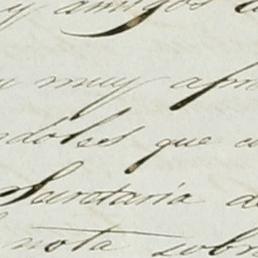 y amigos
y muy apre
ndoles que
Secretaría d
nota sobr